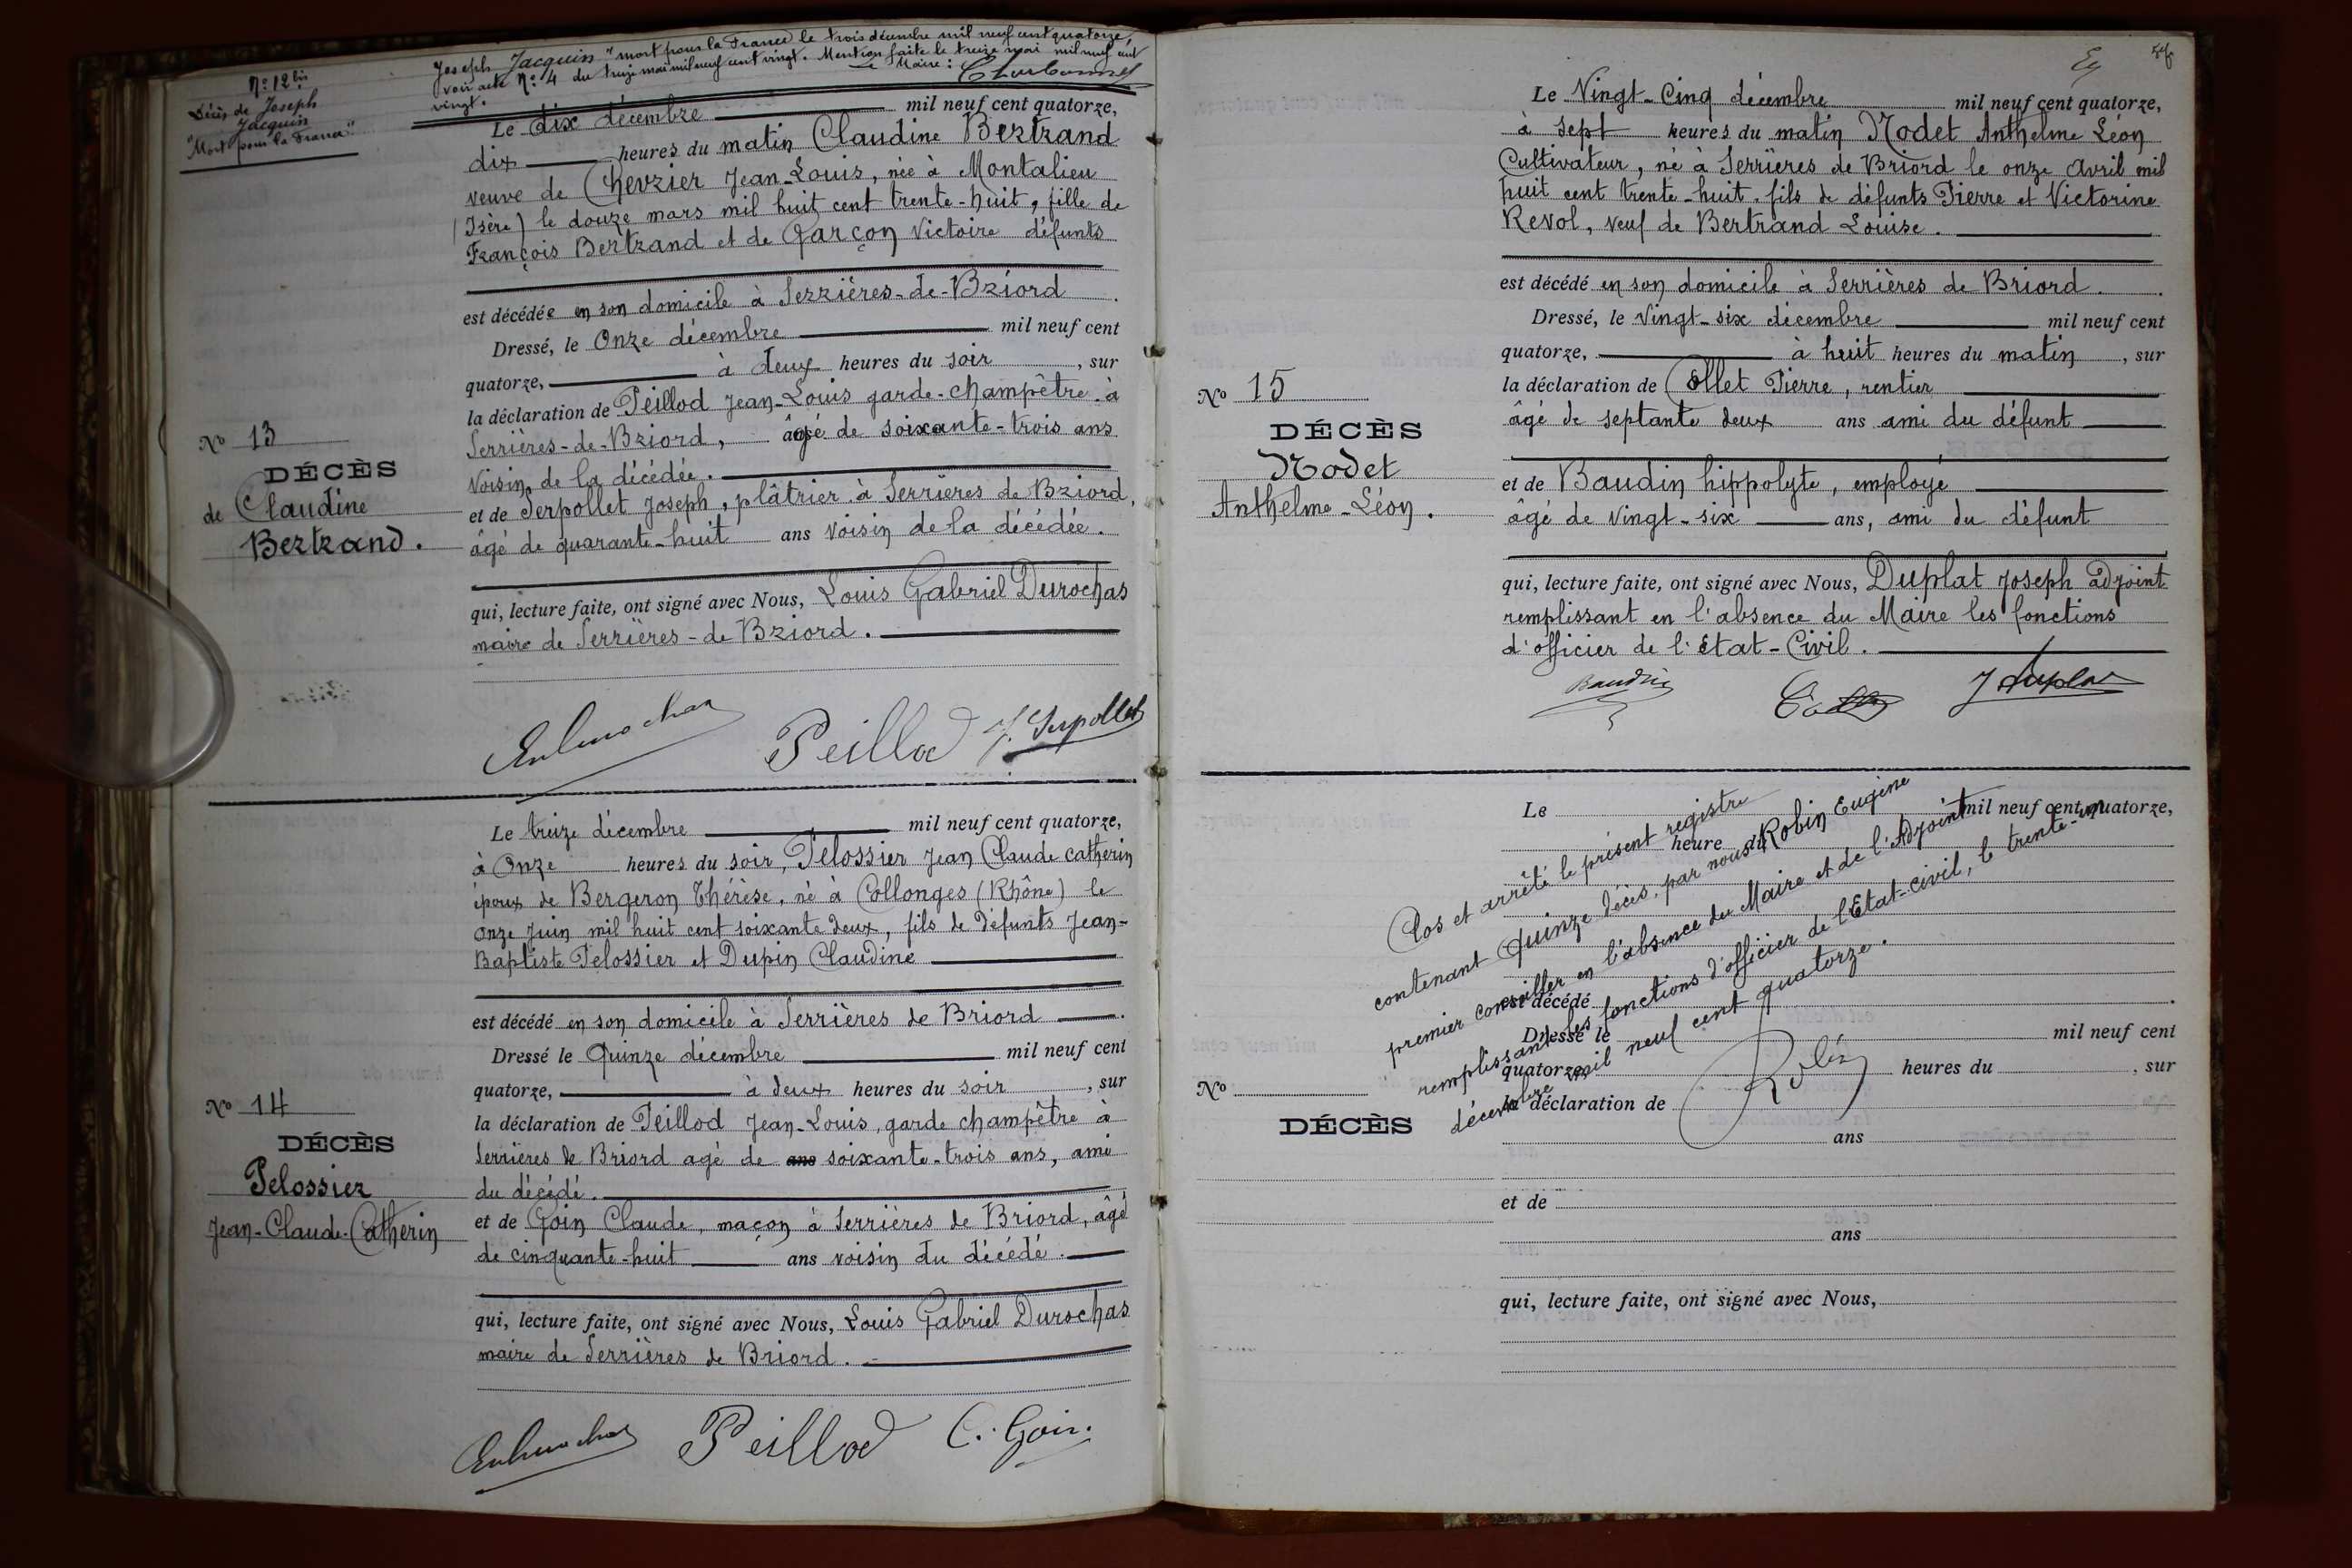 N° 12 bis
Décès de Joseph
Jacquin
"Mort pour la France"
Joseph Jacquin "mort pour la France" le trois décembre mil neuf cent quatorze,
voir acte N° 4 du treize mai mil neuf cent vingt. Mention faite le treize mai mil neuf cent
vingt. Le Maire : Charbonnet
Le dix décembre mil neuf cent quatorze,
dix heures du matin Claudine Bertrand
veuve de Chevrier Jean-Louis, née à Montalieu
(Isère) le douze mars mil huit cent trente-huit, fille de
François Bertrand et de Garçon Victoire défunts
est décédée en son domicile à Serrières-de-Briord.
Dressé, le Onze décembre mil neuf cent
quatorze, à deux heures du soir, sur
la déclaration de Peillod Jean-Louis garde-champêtre à
Serrières-de-Briord, âgé de soixante-trois ans
voisin de la décédée.
et de Serpollet Joseph, plâtrier à Serrières de Briord,
âgé de quarante-huit ans voisin de la décédée.
qui, lecture faite, ont signé avec Nous, Louis Gabriel Durochas
maire de Serrières-de Briord.
N° 13
DÉCÈS
de Claudine
Bertrand.
Peillod J. Serpollet
Le treize décembre mil neuf cent quatorze,
à Onze heures du soir, Pelossier Jean Claude Catherin
époux de Bergeron Thérèse, né à Collonges (Rhône) le
onze Juin mil huit cent soixante deux, fils de défunts Jean-
Baptiste Pelossier et Dupin Claudine
est décédé en son domicile à Serrières de Briord.
Dressé le Quinze décembre mil neuf cent
quatorze, à deux heures du soir, sur
la déclaration de Peillod Jean-Louis, garde champêtre à
Serrières de Briord agé de ans soixante-trois ans, ami
du décédé.
et de Goin Claude, maçon à Serrières de Briord, âgé
de cinquante-huit ans voisin du décédé.
qui, lecture faite, ont signé avec Nous, Louis Gabriel Durochas
maire de Serrières de Briord.
N° 14
DÉCÈS
Pelossier
Jean-Claude-Catherin
Peillod C. Goin.
Le Vingt-Cinq décembre mil neuf cent quatorze,
à sept heures du matin Nodet Anthelme Léon
Cultivateur, né à Serrières de Briord le onze Avril mil
huit cent trente-huit. fils de défunts Pierre et Victorine
Revol, veuf de Bertrand Louise.
est décédé en son domicile à Serrières de Briord.
Dressé, le Vingt-six décembre mil neuf cent
quatorze, à huit heures du matin, sur
la déclaration de Collet Pierre, rentier
âgé de septante deux ans ami du défunt
et de Baudin hippolyte, employé
âgé de vingt-six ans, ami du défunt
qui, lecture faite, ont signé avec Nous, Duplat Joseph adjoint
remplissant en l'absence du Maire les fonctions
d'officier de l'Etat-Civil.
N° 15
DÉCÈS
Nodet
Anthelme-Léon.
Baudin J Duplat
Clos et arrêté le présent registre
contenant Quinze décès, par nous Robin Eugène
premier conseiller en l'absence du Maire et de l'Adjoint
remplissant les fonctions d'officier de l'Etat-civil, le trente-un
décembre mil neuf cent quatorze.
Robin
Le mil neuf cent quatorze,
heure du
est décédé
Dressé le mil neuf cent
quatorze, heures du , sur
la déclaration de
ans
et de
ans
qui, lecture faite, ont signé avec Nous,
N°
DÉCÈS